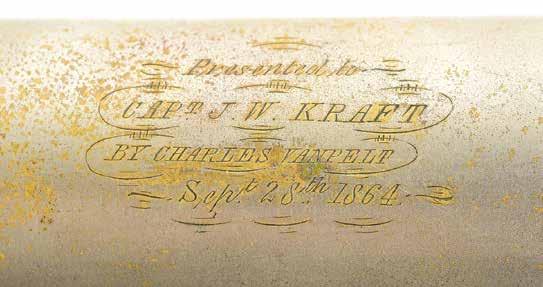 Presented to
CAPT J. W. KRAFT
BY CHARLES VANPELT
Sept 28th 1864